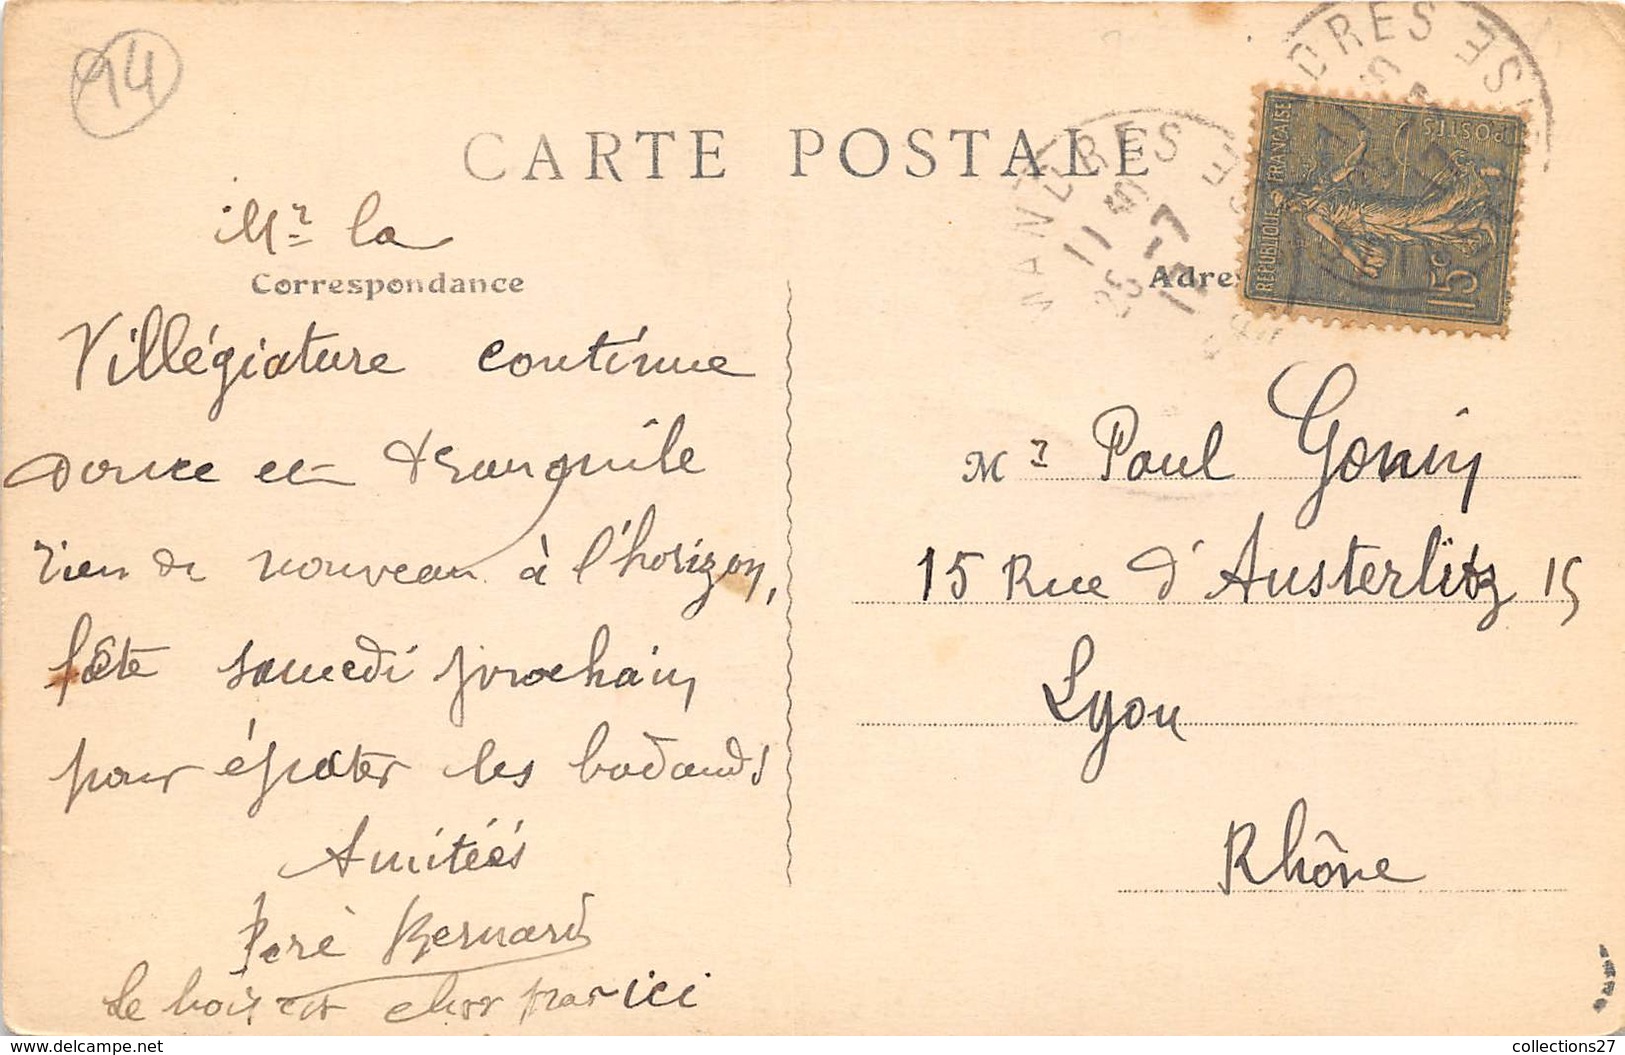 94
CARTE POSTALE
Mr la
Correspondance
Villégiature continue
douce et tranquile
rien de nouveau à l'horizon,
fête samedi prochain
pour épater les badauds
Amitiés
Père Bernard
le bois est cher par ici
MANDRES
11
25 -7
RÉPUBLIQUE FRANÇAISE
POSTES
15c
Adres
Mr Paul Gonin
15 Rue d'Austerlitz 15
Lyon
Rhône
https://www.delcampe.net
collections27